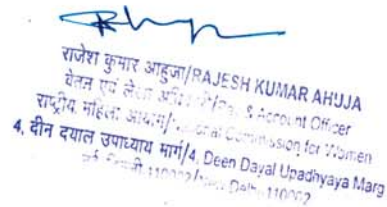 राजेश कुमार आहूजा/RAJESH KUMAR AHUJA
वेतन एवं लेखा अधिकारी/Pay & Account Officer
राष्ट्रीय महिला आयोग/National Commission for Women
4, दीन दयाल उपाध्याय मार्ग/4, Deen Dayal Upadhyaya Marg
नई दिल्ली-110002/New Delhi-110002